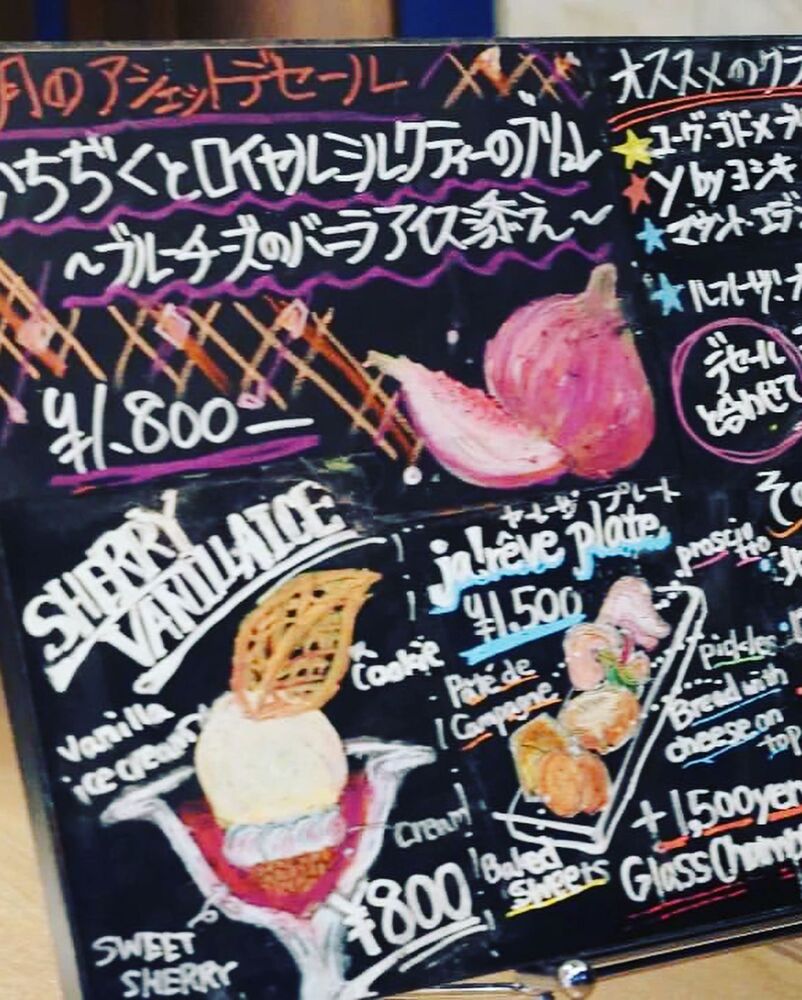 月のアシェットデセール
いちぢくとロイヤルミルクティーのブリュレ
～ブルーチーズのバニラアイス添え～
¥1.800ー
オススメのグラ
ユーグ・ゴドメ
Y byヨシキ
マウント・エデ
デセール
と合わせて
SHERRY
VANILLA ICE
Cookie
Vanilla
ice cream
cream
¥800
SWEET
SHERRY
ヤーレーヴ プレート
ja!rêve plate
¥1,500
prosciutto
Pâté de
Campagne
pickles
Bread with
cheese on
top
Baked
sweets
+1,500yen
Glass Cham